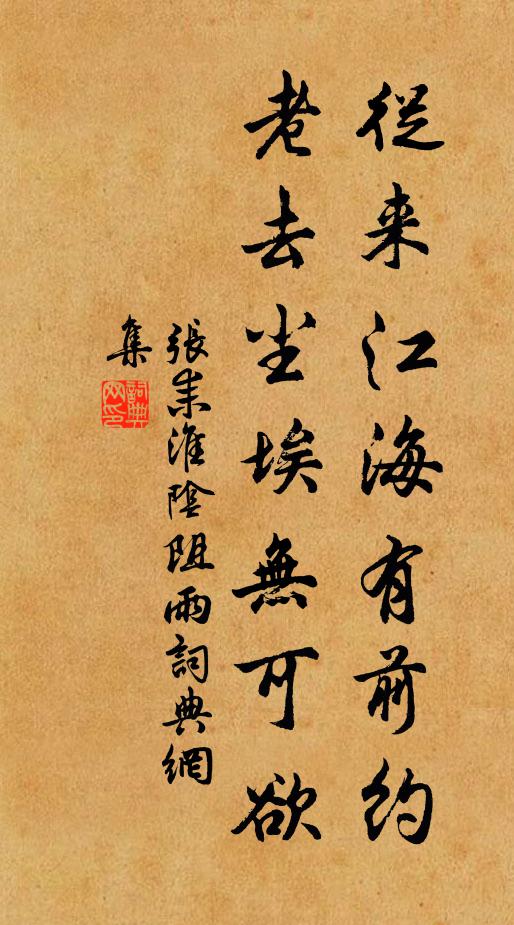 從来江海有前約
老去尘埃無可欲
張耒淮陰阻雨詞典網
集
詞典
网印